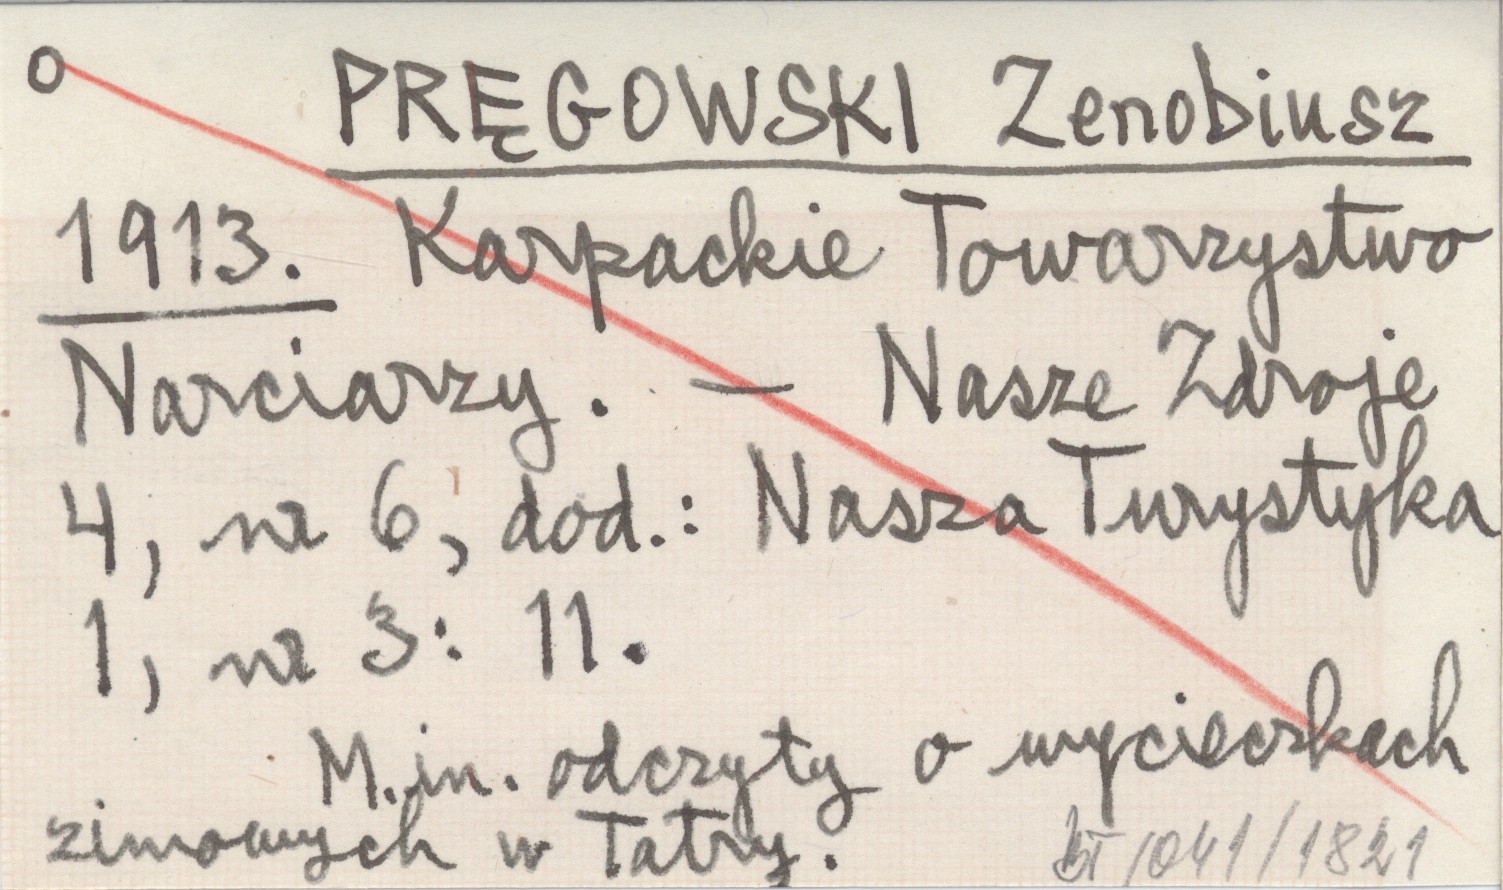 o PRĘGOWSKI Zenobiusz
1913. Karpackie Towarzystwo
Narciarzy. — Nasze Zdroje
4, nr 6, dod.: Nasza Turystyka
1, nr 3: 11.
M.in. odczyty o wycieczkach
zimowych w Tatry.
/041/1821